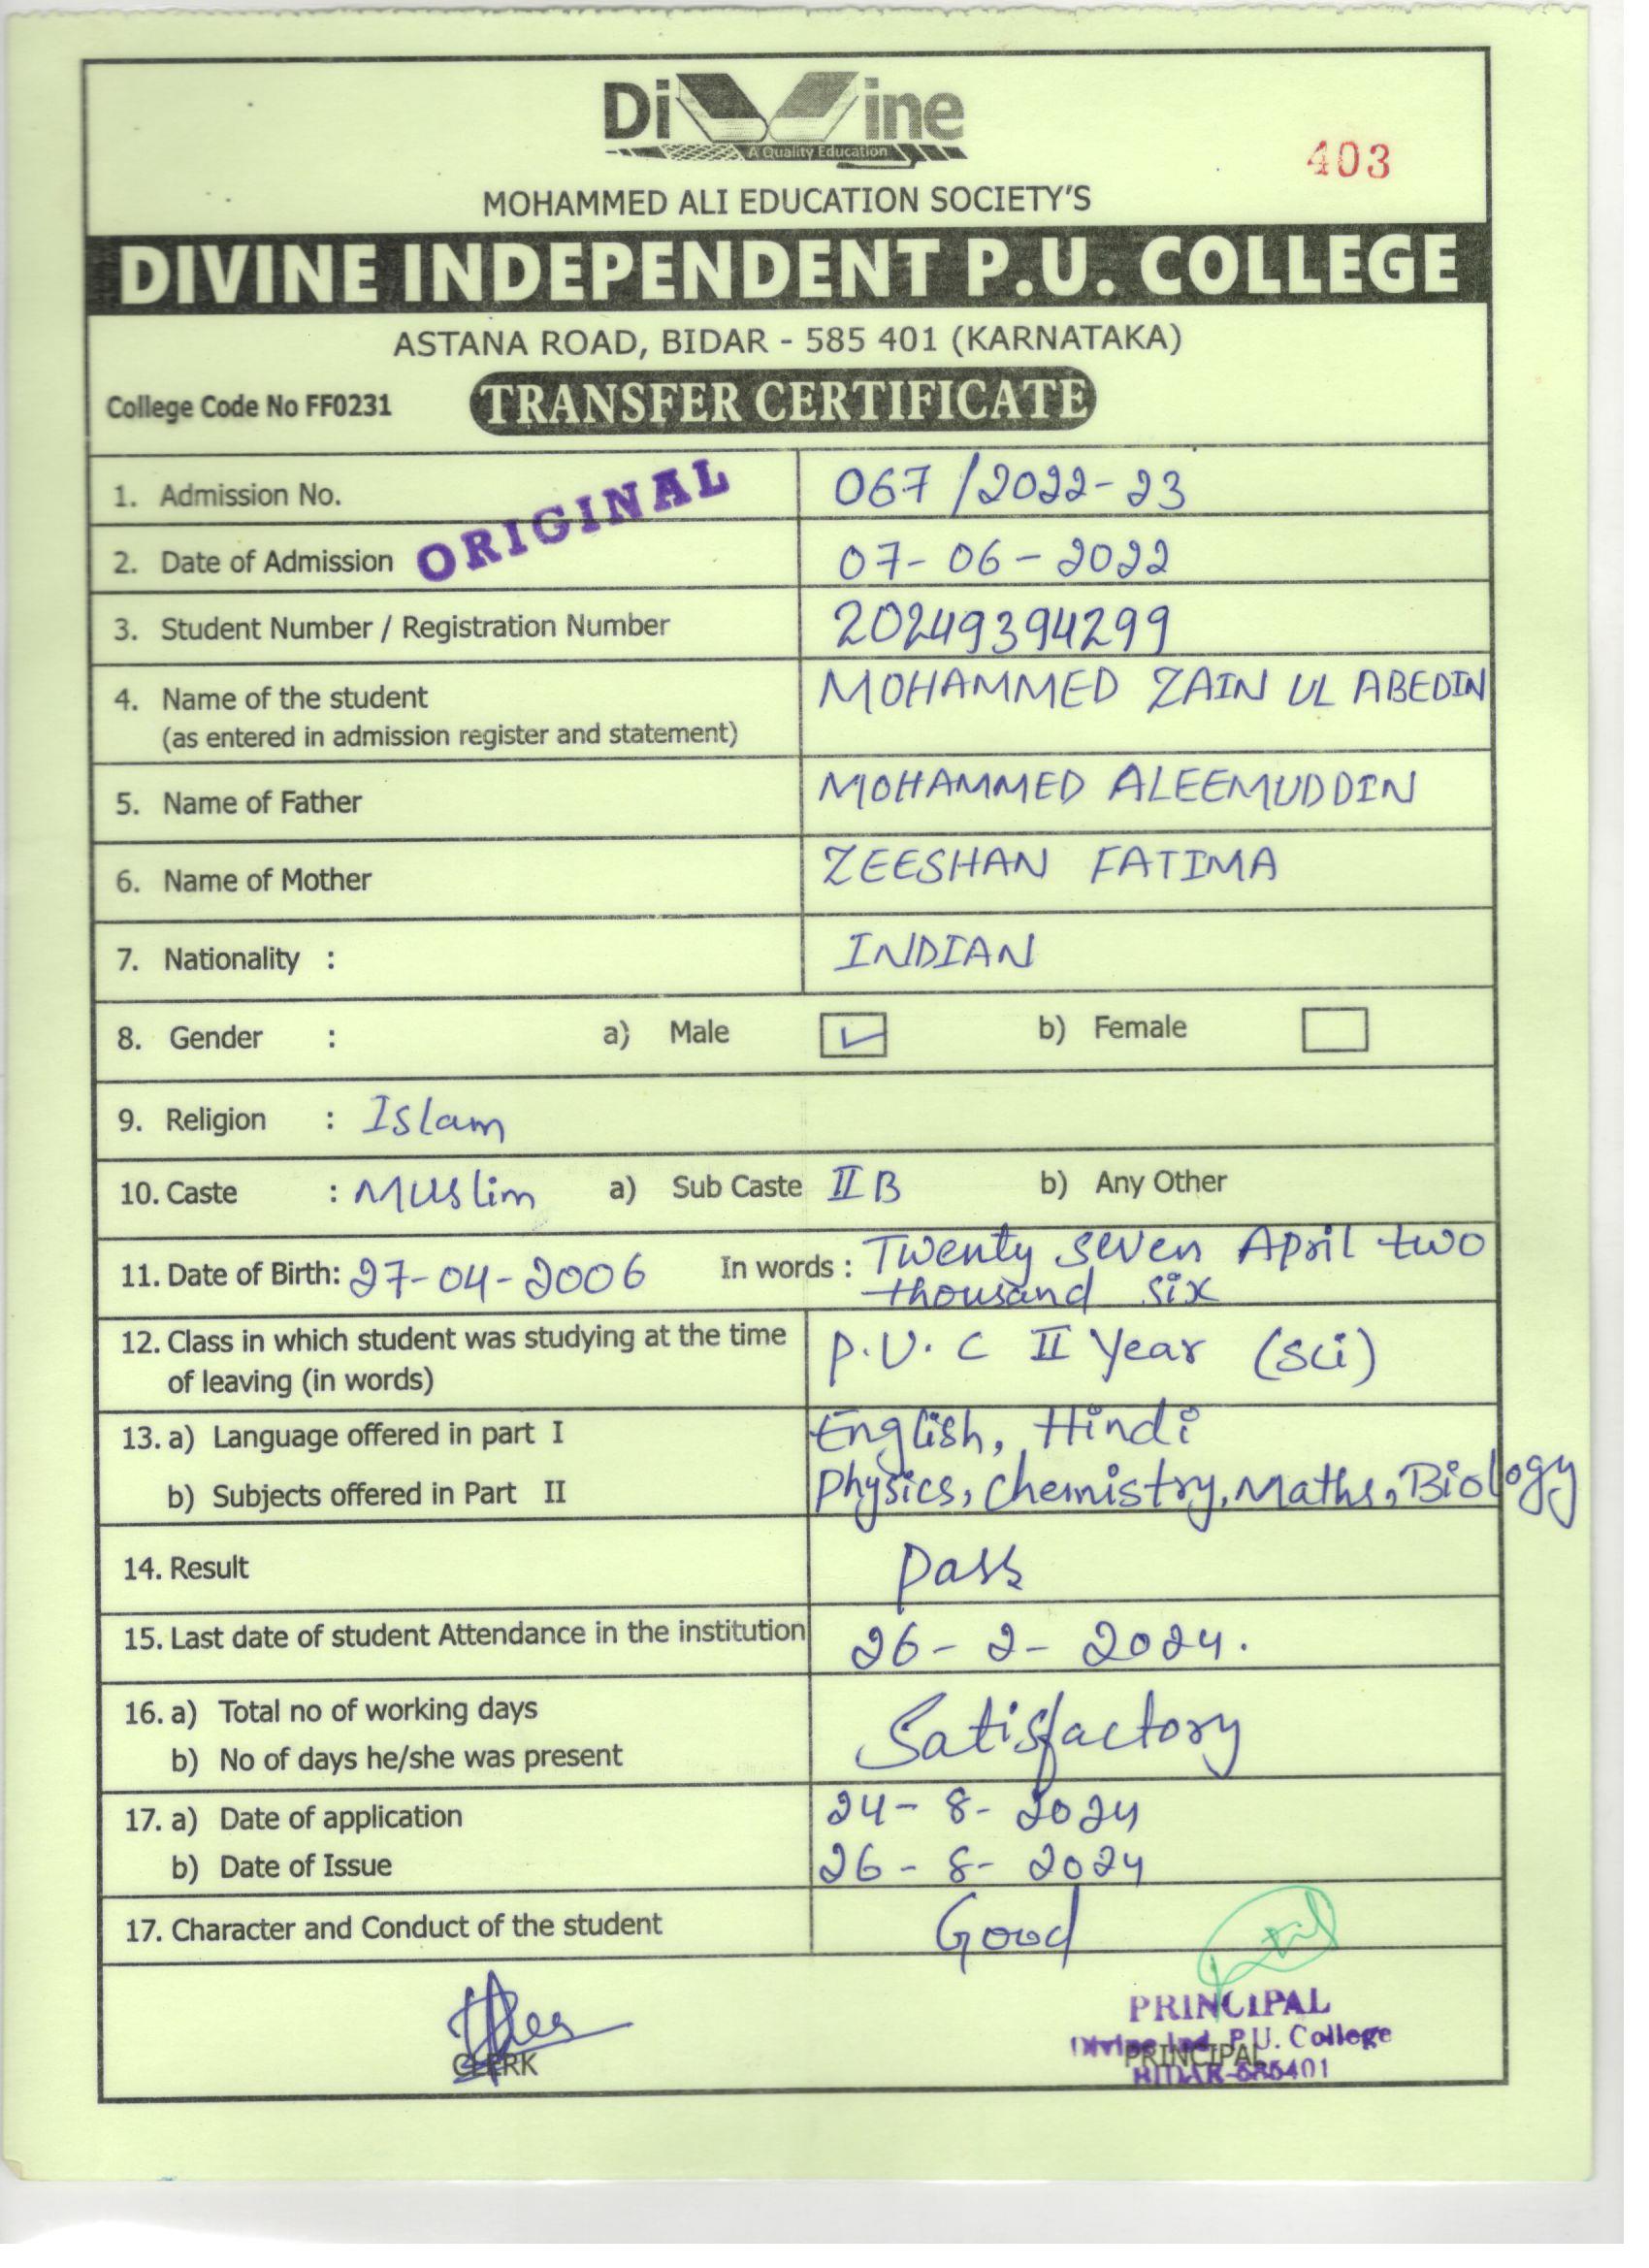 Divine
A Quality Education
403
MOHAMMED ALI EDUCATION SOCIETY'S
DIVINE INDEPENDENT P.U. COLLEGE
ASTANA ROAD, BIDAR - 585 401 (KARNATAKA)
College Code No FF0231 TRANSFER CERTIFICATE
ORIGINAL
1. Admission No. 067/2022-23
2. Date of Admission 07-06-2022
3. Student Number / Registration Number 20249394299
4. Name of the student MOHAMMED ZAIN UL ABEDIN
(as entered in admission register and statement)
5. Name of Father MOHAMMED ALEEMUDDIN
6. Name of Mother ZEESHAN FATIMA
7. Nationality : INDIAN
8. Gender : a) Male ✓ b) Female
9. Religion : Islam
10. Caste : Muslim a) Sub Caste II B b) Any Other
11. Date of Birth: 27-04-2006 In words : Twenty seven April two
thousand six
12. Class in which student was studying at the time P.U.C II Year (Sci)
of leaving (in words)
13. a) Language offered in part I English, Hindi
b) Subjects offered in Part II Physics, Chemistry, Maths, Biology
14. Result Pass
15. Last date of student Attendance in the institution 26-2-2024.
16. a) Total no of working days Satisfactory
b) No of days he/she was present
17. a) Date of application 24-8-2024
b) Date of Issue 26-8-2024
17. Character and Conduct of the student Good
PRINCIPAL
Divine Ind. P.U. College
CLERK PRINCIPAL
BIDAR-585401